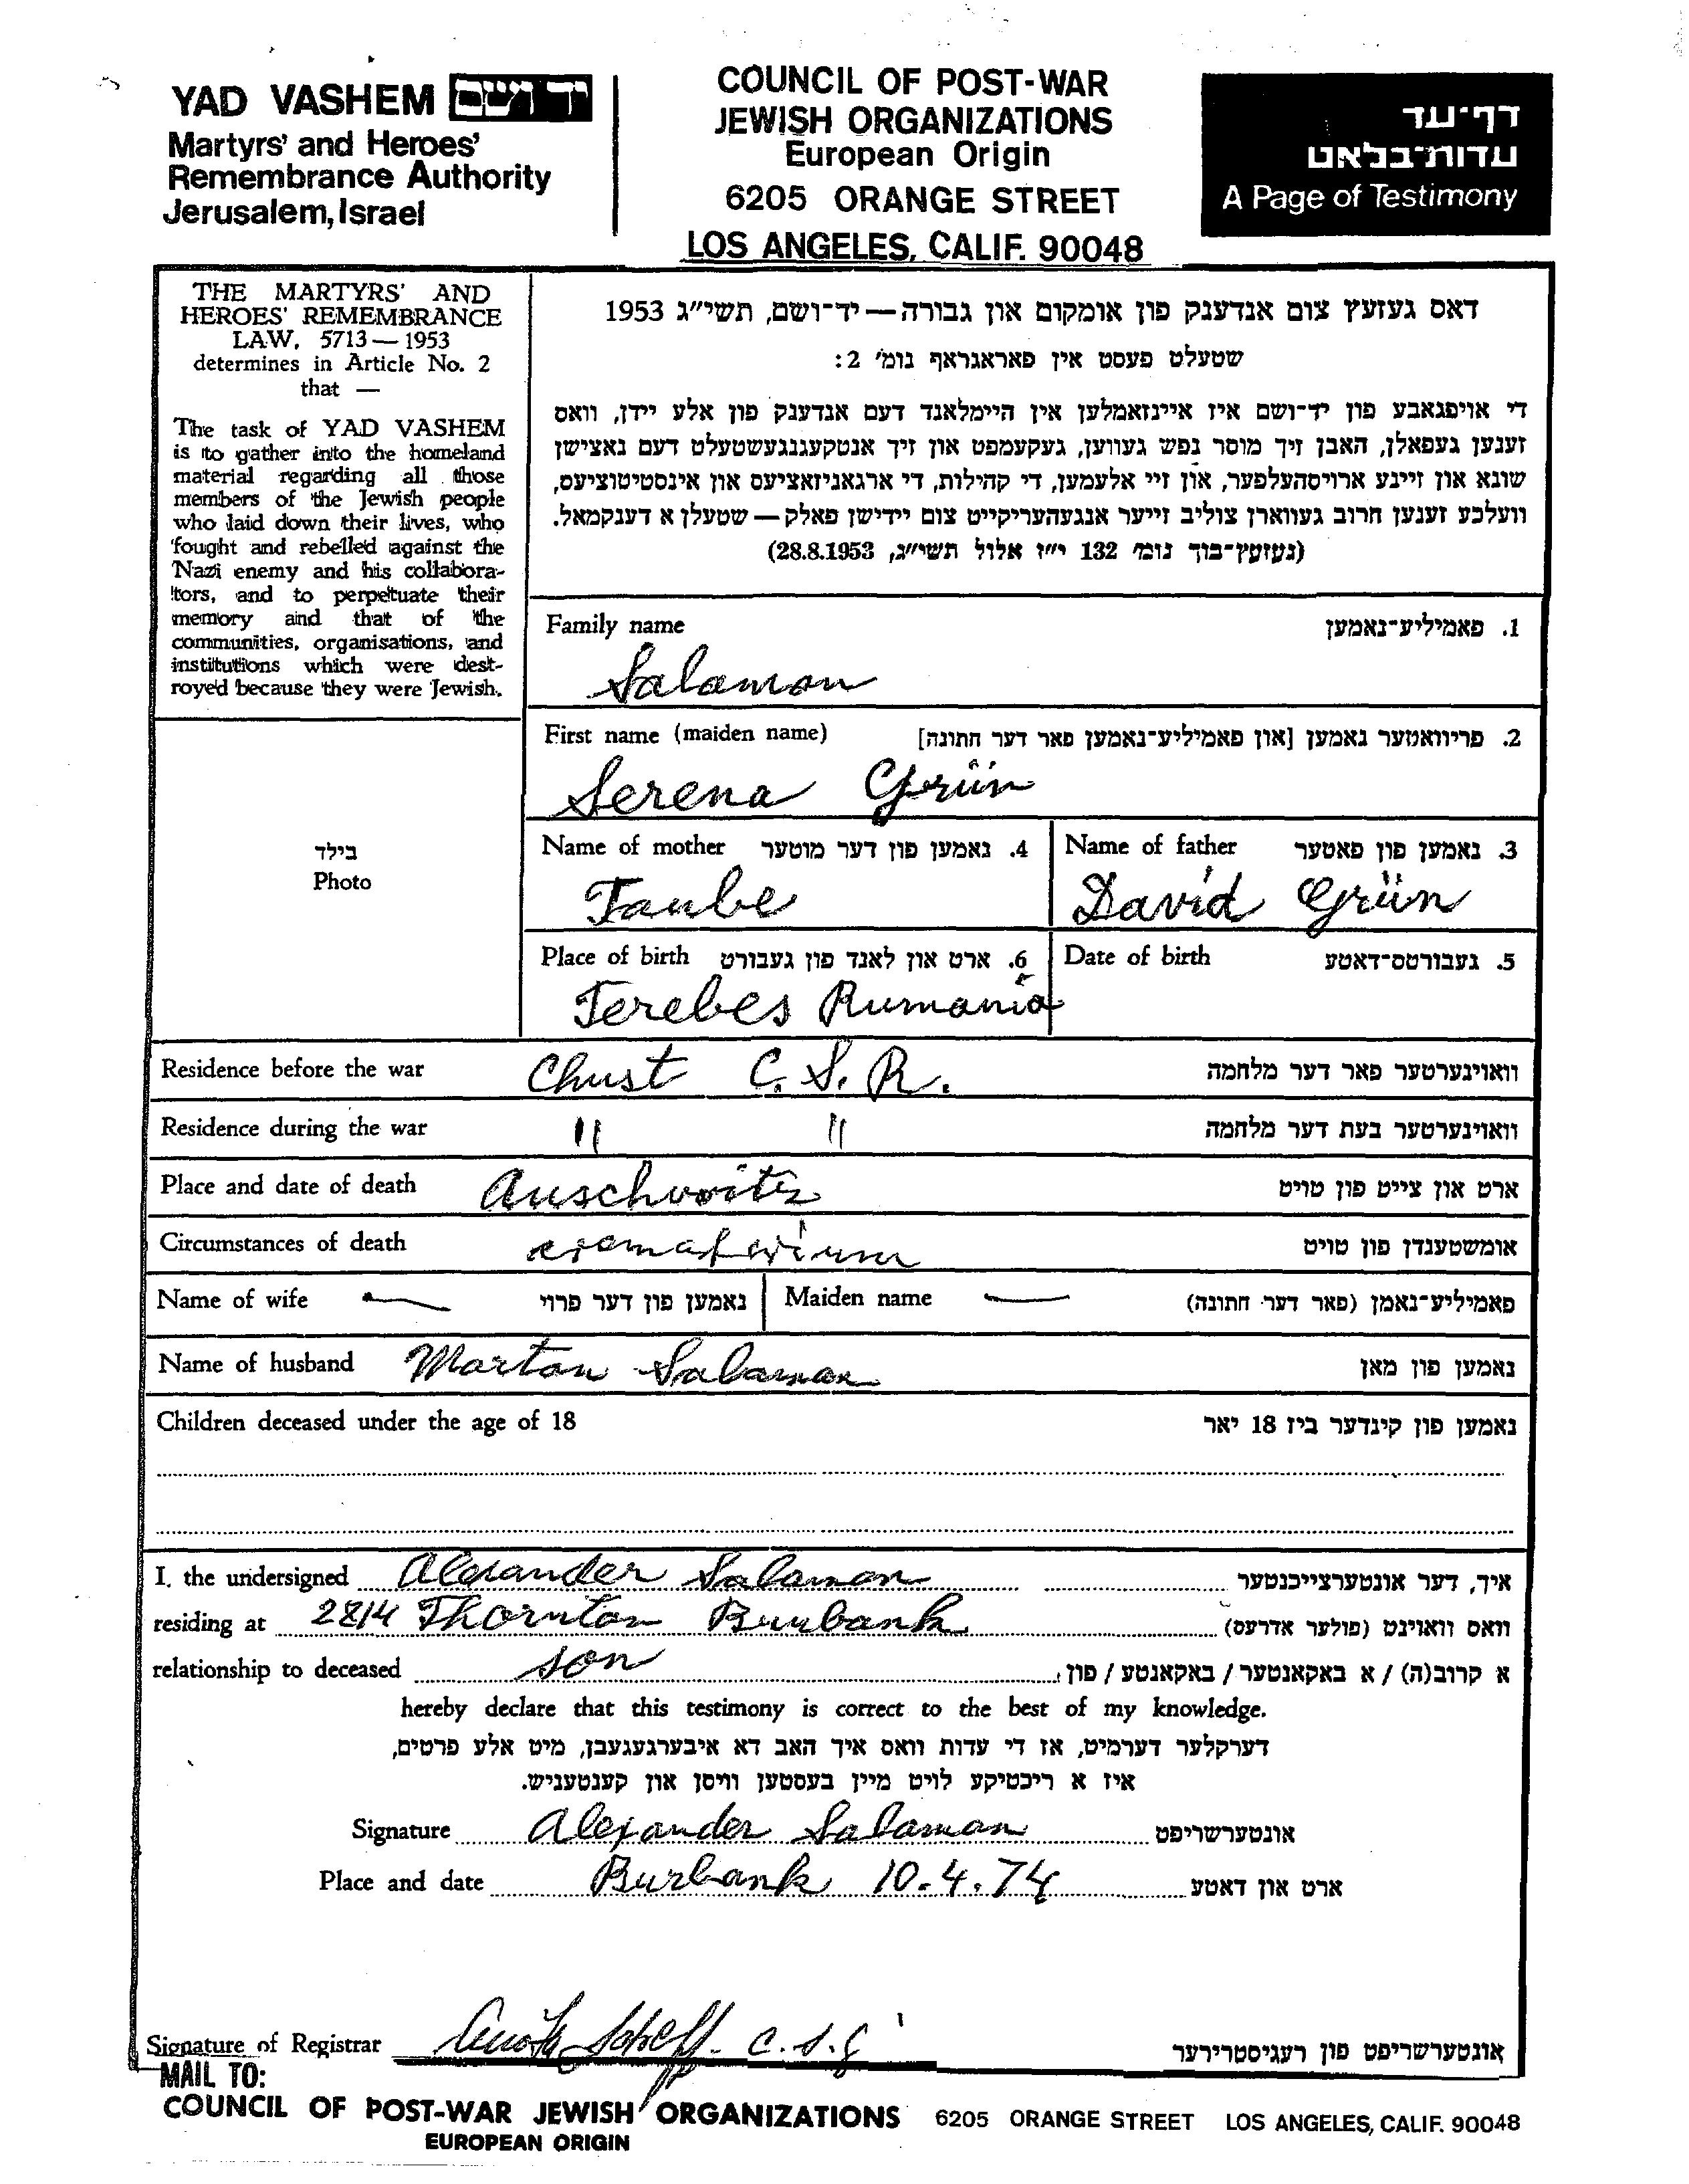 YAD VASHEM יד ושם
Martyrs' and Heroes'
Remembrance Authority
Jerusalem, Israel
COUNCIL OF POST-WAR
JEWISH ORGANIZATIONS
European Origin
6205 ORANGE STREET
LOS ANGELES, CALIF. 90048
דף-עד
עדות-בלאט
A Page of Testimony
THE MARTYRS' AND
HEROES' REMEMBRANCE
LAW, 5713—1953
determines in Article No. 2
that —
The task of YAD VASHEM
is to gather into the homeland
material regarding all those
members of the Jewish people
who laid down their lives, who
fought and rebelled against the
Nazi enemy and his collabora-
tors, and to perpetuate their
memory and that of the
communities, organisations, and
institutions which were dest-
royed because they were Jewish.
דאס געזעץ צום אנדענק פון אומקום און גבורה — יד-ושם, תשי"ג 1953
שטעלט פעסט אין פאראגראף נומ' 2:
די אויפגאבע פון יד-ושם איז איינזאמלען אין היימלאנד דעם אנדענק פון אלע יידן, וואס
זענען געפאלן, האבן זיך מוסר נפש געווען, געקעמפט און זיך אנטקעגנגעשטעלט דעם נאצישן
שונא און זיינע ארויסהעלפער, און זיי אלעמען, די קהילות, די ארגאניזאציעס און אינסטיטוציעס,
וועלכע זענען חרוב געווארן צוליב זייער אנגעהעריקייט צום יידישן פאלק — שטעלן א דענקמאל.
(געזעץ-בוך נומ' 132 י"ז אלול תשי"ג, 28.8.1953)
Family name 1. פאמיליע-נאמען
Salamon
First name (maiden name) 2. פריוואטער נאמען [און פאמיליע-נאמען פאר דער חתונה]
Serena Grün
Name of mother 4. נאמען פון דער מוטער Name of father 3. נאמען פון פאטער
Taube David Grün
Place of birth 6. ארט און לאנד פון געבורט Date of birth 5. געבורטס-דאטע
Terebes Rumania
בילד
Photo
Residence before the war Chust C. S. R. וואוינערטער פאר דער מלחמה
Residence during the war " " וואוינערטער בעת דער מלחמה
Place and date of death Auschwitz ארט און צייט פון טויט
Circumstances of death crematorium אומשטענדן פון טויט
Name of wife — נאמען פון דער פרוי Maiden name — פאמיליע-נאמן (פאר דער חתונה)
Name of husband Marton Salamon נאמען פון מאן
Children deceased under the age of 18 נאמען פון קינדער ביז 18 יאר
I, the undersigned Alexander Salamon איך, דער אונטערצייכנטער
residing at 2814 Thornton Burbank וואס וואוינט (פולער אדרעס)
relationship to deceased son א קרוב(ה) / א באקאנטער / באקאנטע / פון
hereby declare that this testimony is correct to the best of my knowledge.
דערקלער דערמיט, אז די עדות וואס איך האב דא איבערגעגעבן, מיט אלע פרטים,
איז א ריכטיקע לויט מיין בעסטען וויסן און קענטעניש.
Signature Alexander Salamon אונטערשריפט
Place and date Burbank 10.4.74 ארט און דאטע
Signature of Registrar אונטערשריפט פון רעגיסטרירער
MAIL TO:
COUNCIL OF POST-WAR JEWISH ORGANIZATIONS 6205 ORANGE STREET LOS ANGELES, CALIF. 90048
EUROPEAN ORIGIN